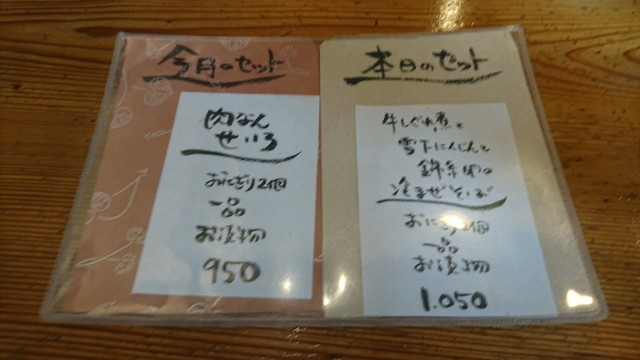 今月のセット
肉なん
せいろ
おにぎり2個
一品
お漬物
950
本日のセット
牛しぐれ煮と
雪下にんじんと
錦糸卵の
冷まぜそば
おにぎり2個
一品
お漬物
1.050